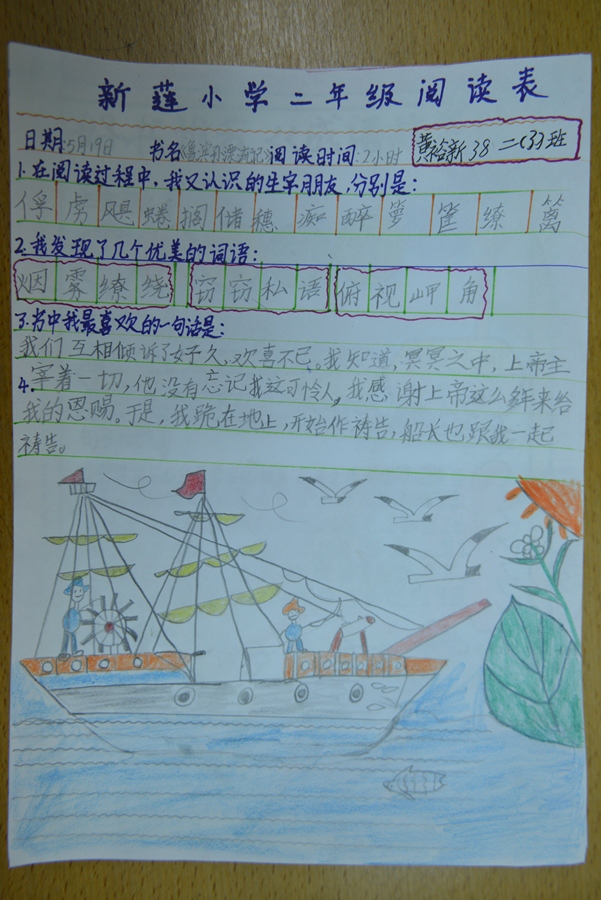 新莲小学二年级阅读表
日期:5月19日 书名《鲁滨孙漂流记》阅读时间:2小时 黄裕新 38 二(3)班
1.在阅读过程中,我又认识的生字朋友,分别是:
俘 虏 飓 蜷 搁 储 穗 痴 醉 箩 筐 缭 篱
2.我发现了几个优美的词语:
烟雾缭绕 窃窃私语 俯视岬角
3.书中我最喜欢的一句话是:
我们互相倾诉了好久,欢喜不已。我知道,冥冥之中,上帝主
4.宰着一切,他没有忘记我这可怜人,我感谢上帝这么多年来给
我的恩赐。于是,我跪在地上,开始作祷告,船长也跟我一起
祷告。